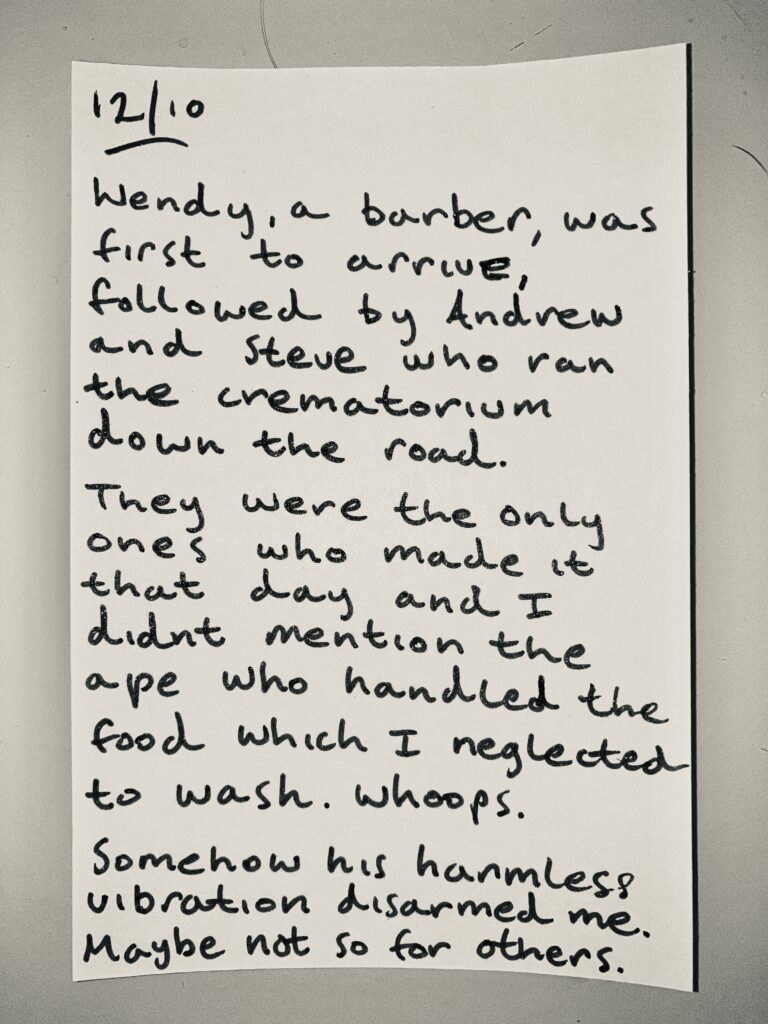 12/10
Wendy, a barber, was
first to arrive,
followed by Andrew
and Steve who ran
the crematorium
down the road.
They were the only
ones who made it
that day and I
didnt mention the
ape who handled the
food which I neglected
to wash. Whoops.
Somehow his harmless
vibration disarmed me.
Maybe not so for others.